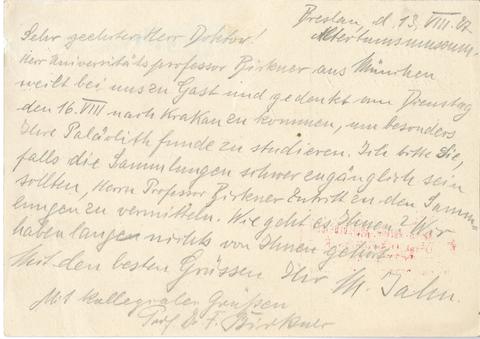 Breslau, d. 13. VIII. 27
Altertumsmuseum.
Sehr geehrter Herr Doktor!
Herr Universitätsprofessor Birkner aus München
weilt bei uns zu Gast und gedenkt am Dienstag
den 16. VIII nach Krakau zu kommen, um besonders
Ihre Paläolithfunde zu studieren. Ich bitte Sie,
falls die Sammlungen schwer zugänglich sein
sollten, Herrn Professor Birkner Eintritt zu den Samm-
lungen zu vermitteln. Wie geht es Ihnen? Wir
haben lange nichts von Ihnen gehört.
Mit den besten Grüssen Ihr M. Jahn.
Mit kollegialen Grüßen
Prof. Dr. F. Birkner